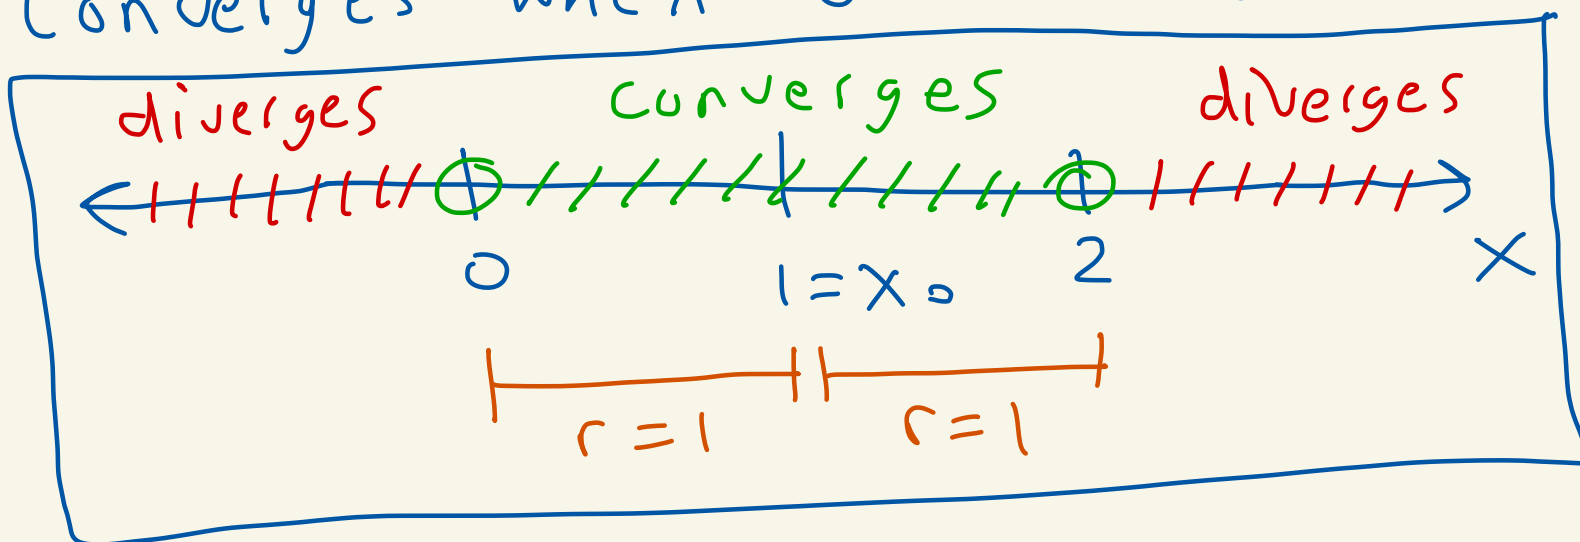 Converges when
diverges converges diverges
0 1 = x₀ 2 x
r = 1 r = 1